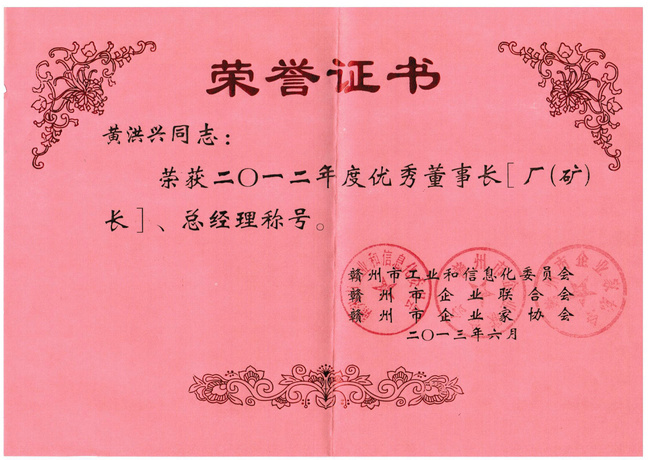 荣誉证书
黄洪兴同志：
荣获二〇一二年度优秀董事长[厂(矿)
长]、总经理称号。
赣州市工业和信息化委员会
赣州市企业联合会
赣州市企业家协会
二〇一三年六月